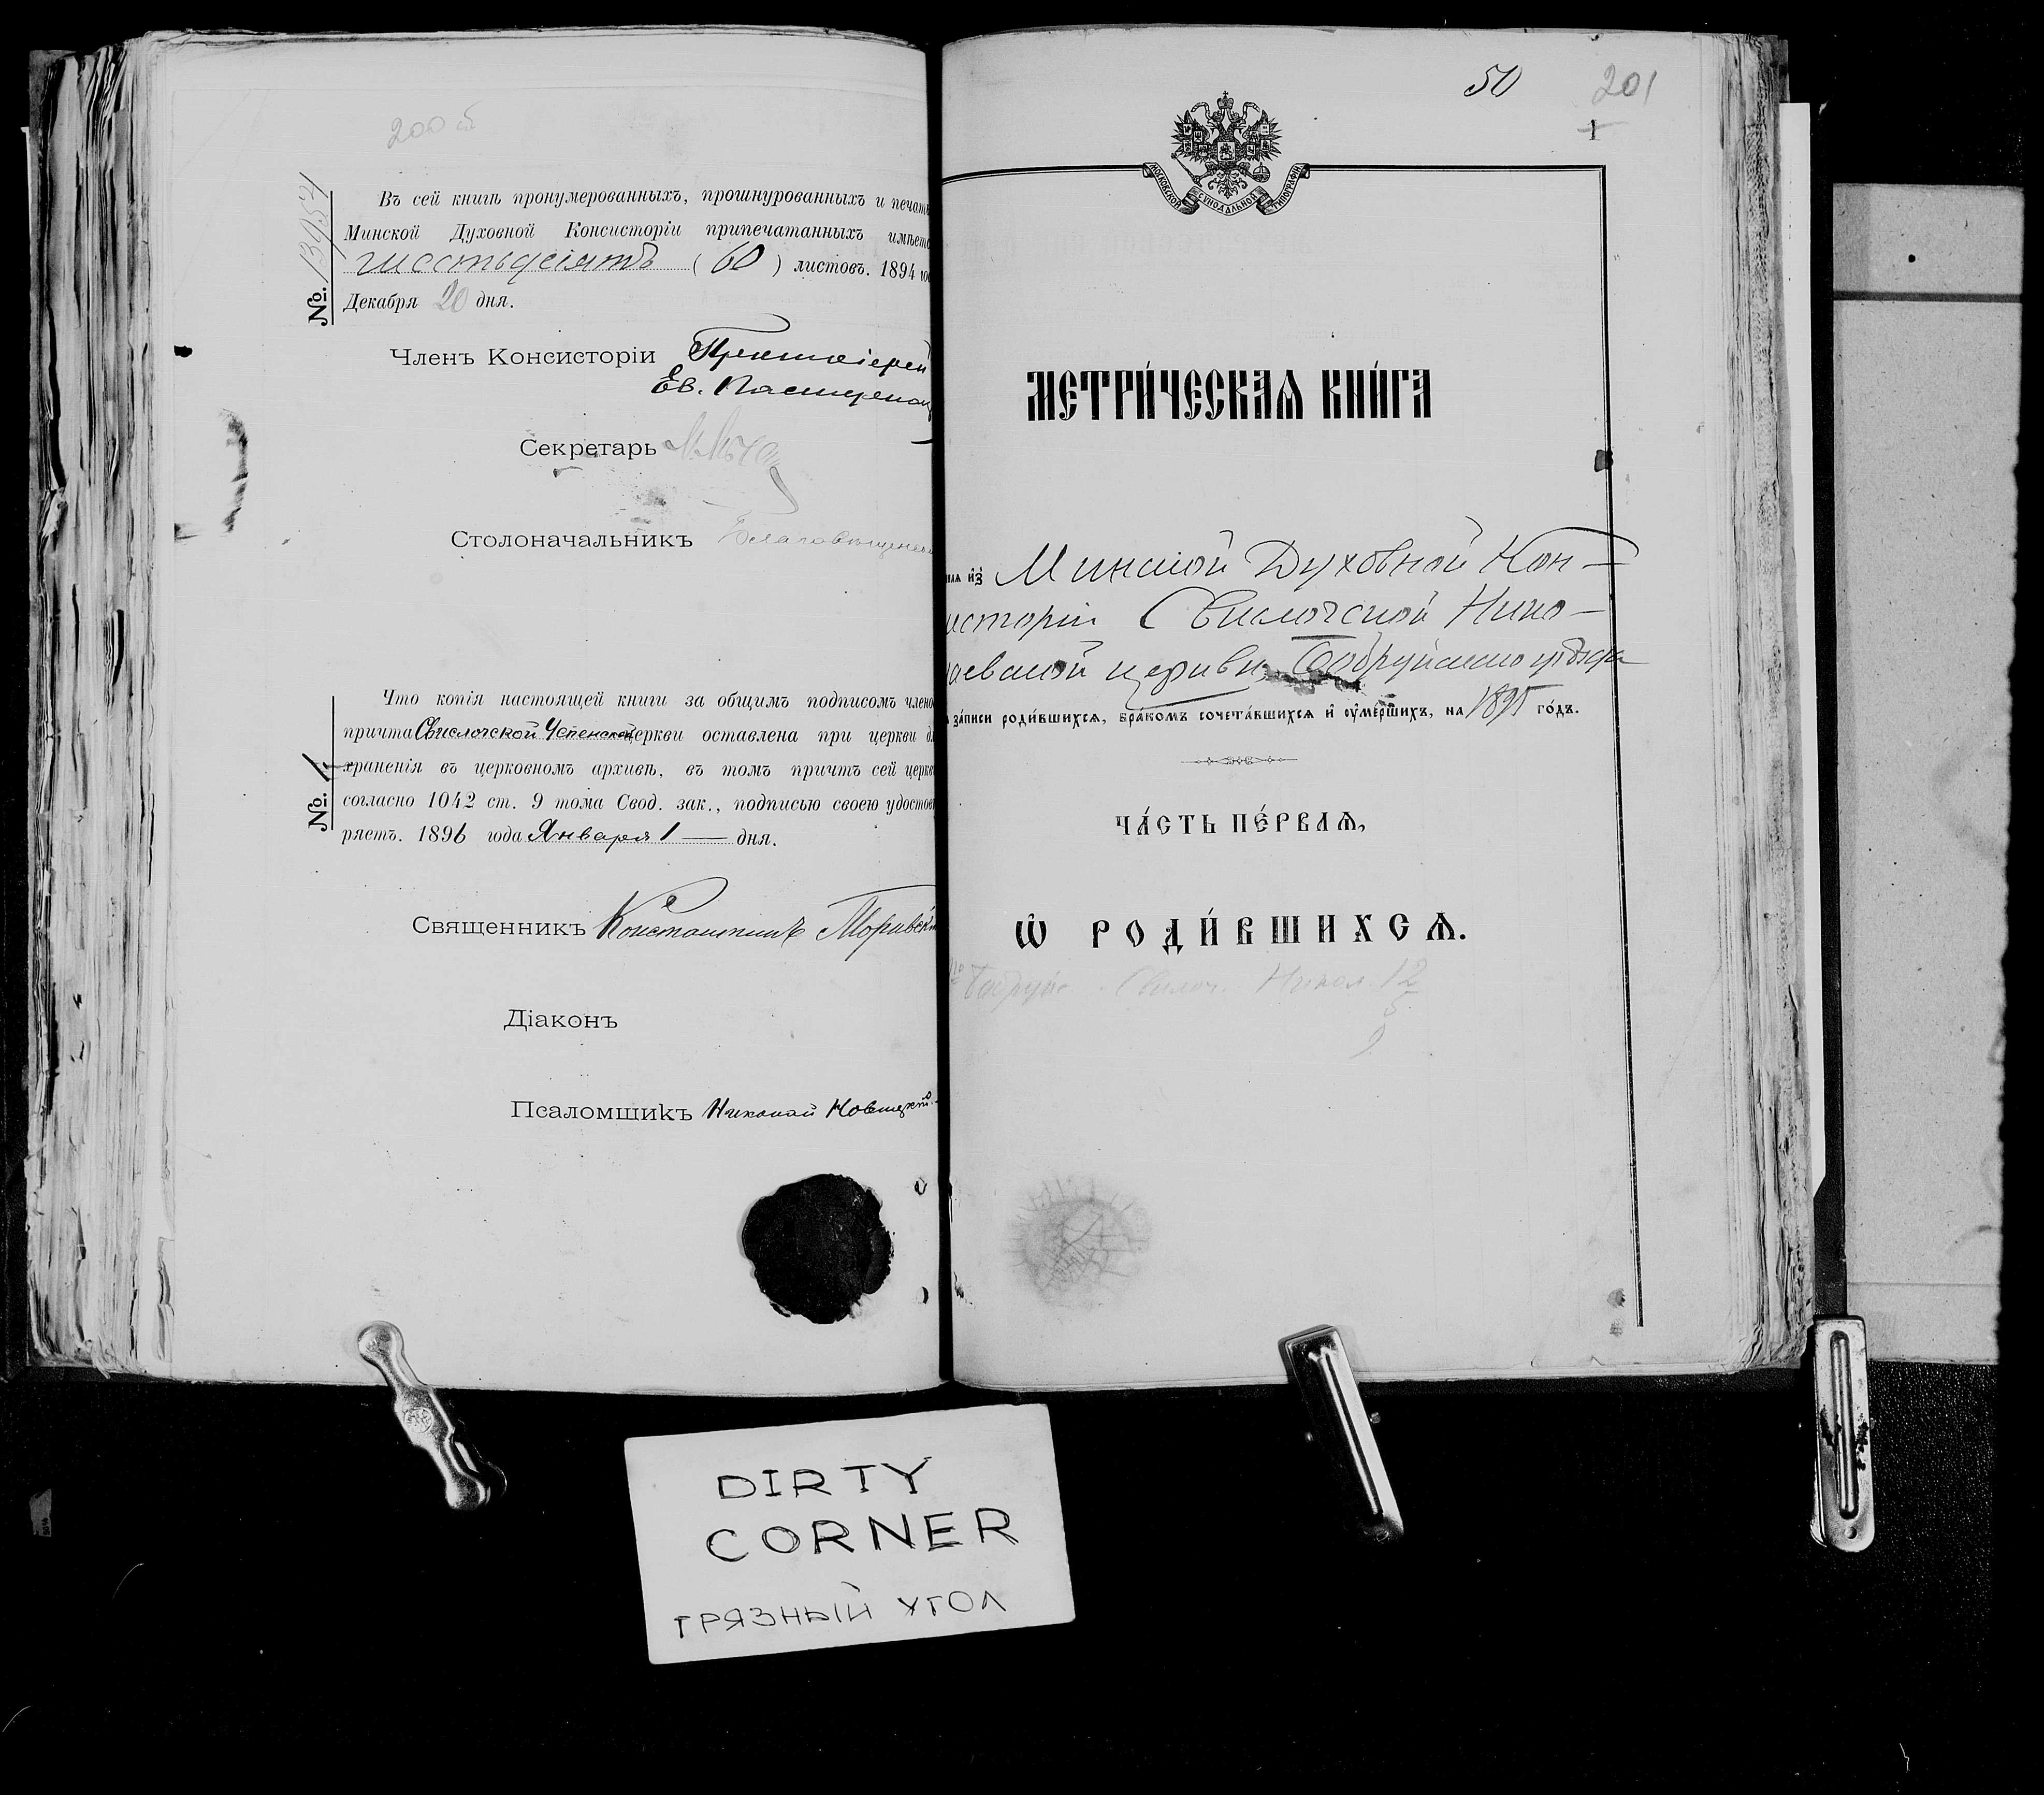 200 об
№. 13954
Въ сей книгѣ пронумерованныхъ, прошнурованныхъ и печат
Минской Духовной Консисторіи припечатанныхъ имѣетс
шестьдесятъ ( 60 ) листовъ. 1894 го
Декабря 20 дня.
Членъ Консисторіи Протоіерей
Ев.
Секретарь
Столоначальникъ Благовѣщенск
№. 1
Что копія настоящей книги за общимъ подписомъ члено
причта Свислочской Успенской церкви оставлена при церкви дл
храненія въ церковномъ архивѣ, въ томъ причтъ сей церкв
согласно 1042 ст. 9 тома Свод. зак., подписью своею удостов
ряетъ. 1896 года Января 1 — дня.
Священникъ Константинъ
Діаконъ
Псаломщикъ Николай Новицкій.
50 201
1
МОСКОВСКОЙ СѴНОДАЛЬНОЙ ТИПОГРАФІИ
МЕТРИ́ЧЕСКАѦ КНИ́ГА
из̾ Минской Духовной Кон-
исторіи Свислочской Нико-
лаевской церкви Бобруйскаго уѣзда
за́писи роди́вшихсѧ, бра́комъ сочета́вшихсѧ и҆ ᲂу҆ме́ршихъ, на 1895 го́дъ.
ЧА́СТЬ ПЕ́РВАѦ,
Ѡ҆ РОДИ́ВШИХСѦ.
Бобруйс. Свислоч. Никол. 12
5
DIRTY
CORNER
ГРЯЗНЫЙ УГОЛ